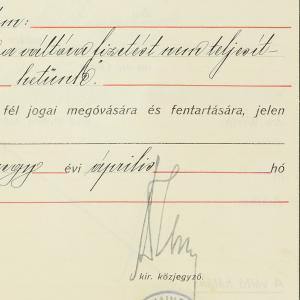 m:
a váltóra fizetést nem teljesít-
hetünk".
fél jogai megóvására és fentartására, jelen
évi április hó
kir. közjegyző.